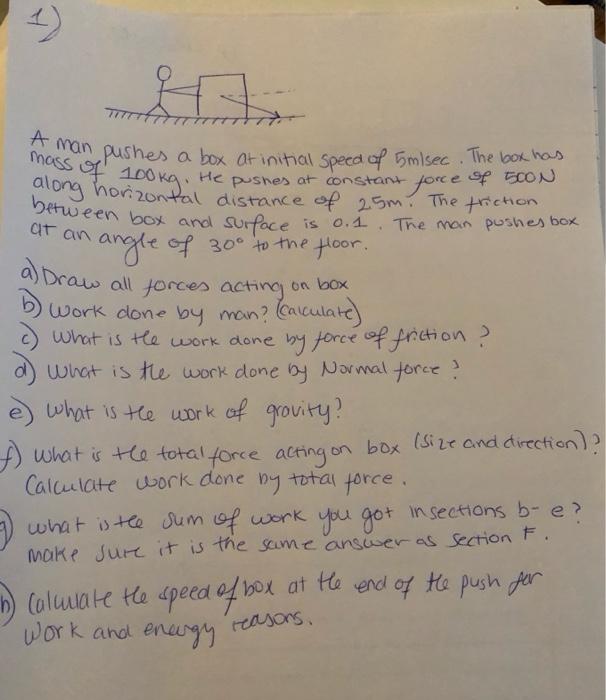 1)
A man pushes a box at initial speed of 5m/sec. The box has
mass of 100kg. He pushes at constant force of 500N
along horizontal distance of 25m. The friction
between box and surface is 0.1. The man pushes box
at an angle of 30° to the floor.
a) Draw all forces acting on box
b) Work done by man? (calculate)
c) What is the work done by force of friction?
d) What is the work done by Normal force?
e) What is the work of gravity?
f) What is the total force acting on box (size and direction)?
Calculate work done by total force.
g) what is the sum of work you got in sections b-e?
make sure it is the same answer as section F.
h) Calculate the speed of box at the end of the push for
Work and energy reasons.